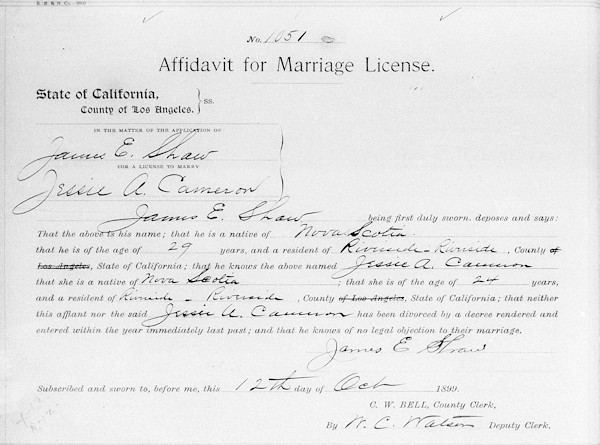 No. 1051
Affidavit for Marriage License.
State of California,
County of Los Angeles. } ss.
IN THE MATTER OF THE APPLICATION OF
James E. Shaw
FOR A LICENSE TO MARRY
Jessie A. Cameron
James E. Shaw being first duly sworn, deposes and says:
That the above is his name; that he is a native of Nova Scotia
that he is of the age of 29 years, and a resident of Riverside - Riverside, County of
Los Angeles, State of California; that he knows the above named Jessie A. Cameron
that she is a native of Nova Scotia ; that she is of the age of 24 years,
and a resident of Riverside - Riverside, County of Los Angeles, State of California; that neither
this affiant nor the said Jessie A. Cameron has been divorced by a decree rendered and
entered within the year immediately last past; and that he knows of no legal objection to their marriage.
James E Shaw
Subscribed and sworn to, before me, this 12th day of Oct 1899.
C. W. BELL, County Clerk,
By W. C. Watson Deputy Clerk.